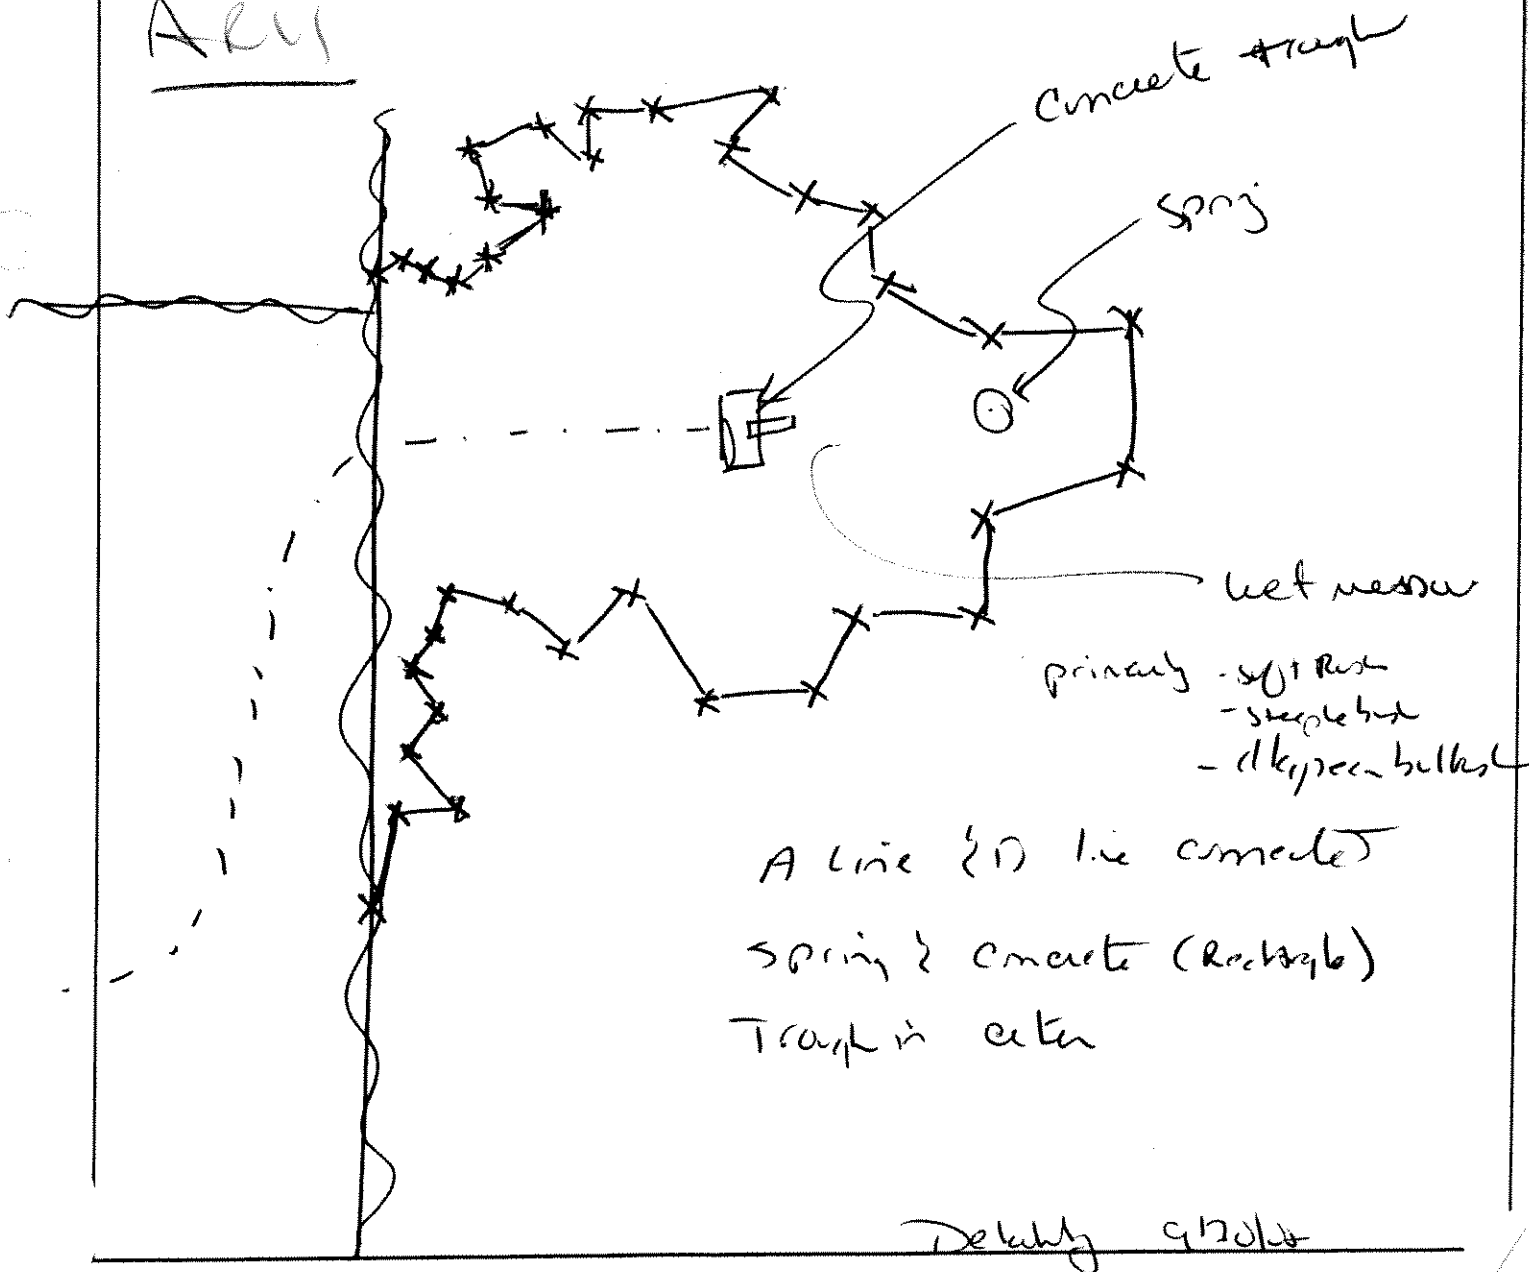 Concrete trough
Spring
wet meadow
primarily - soft Rush
- steeplebush
- dkgreen bullrush
A Line & D line connected
Spring & Concrete (Rectangle)
Trough in center